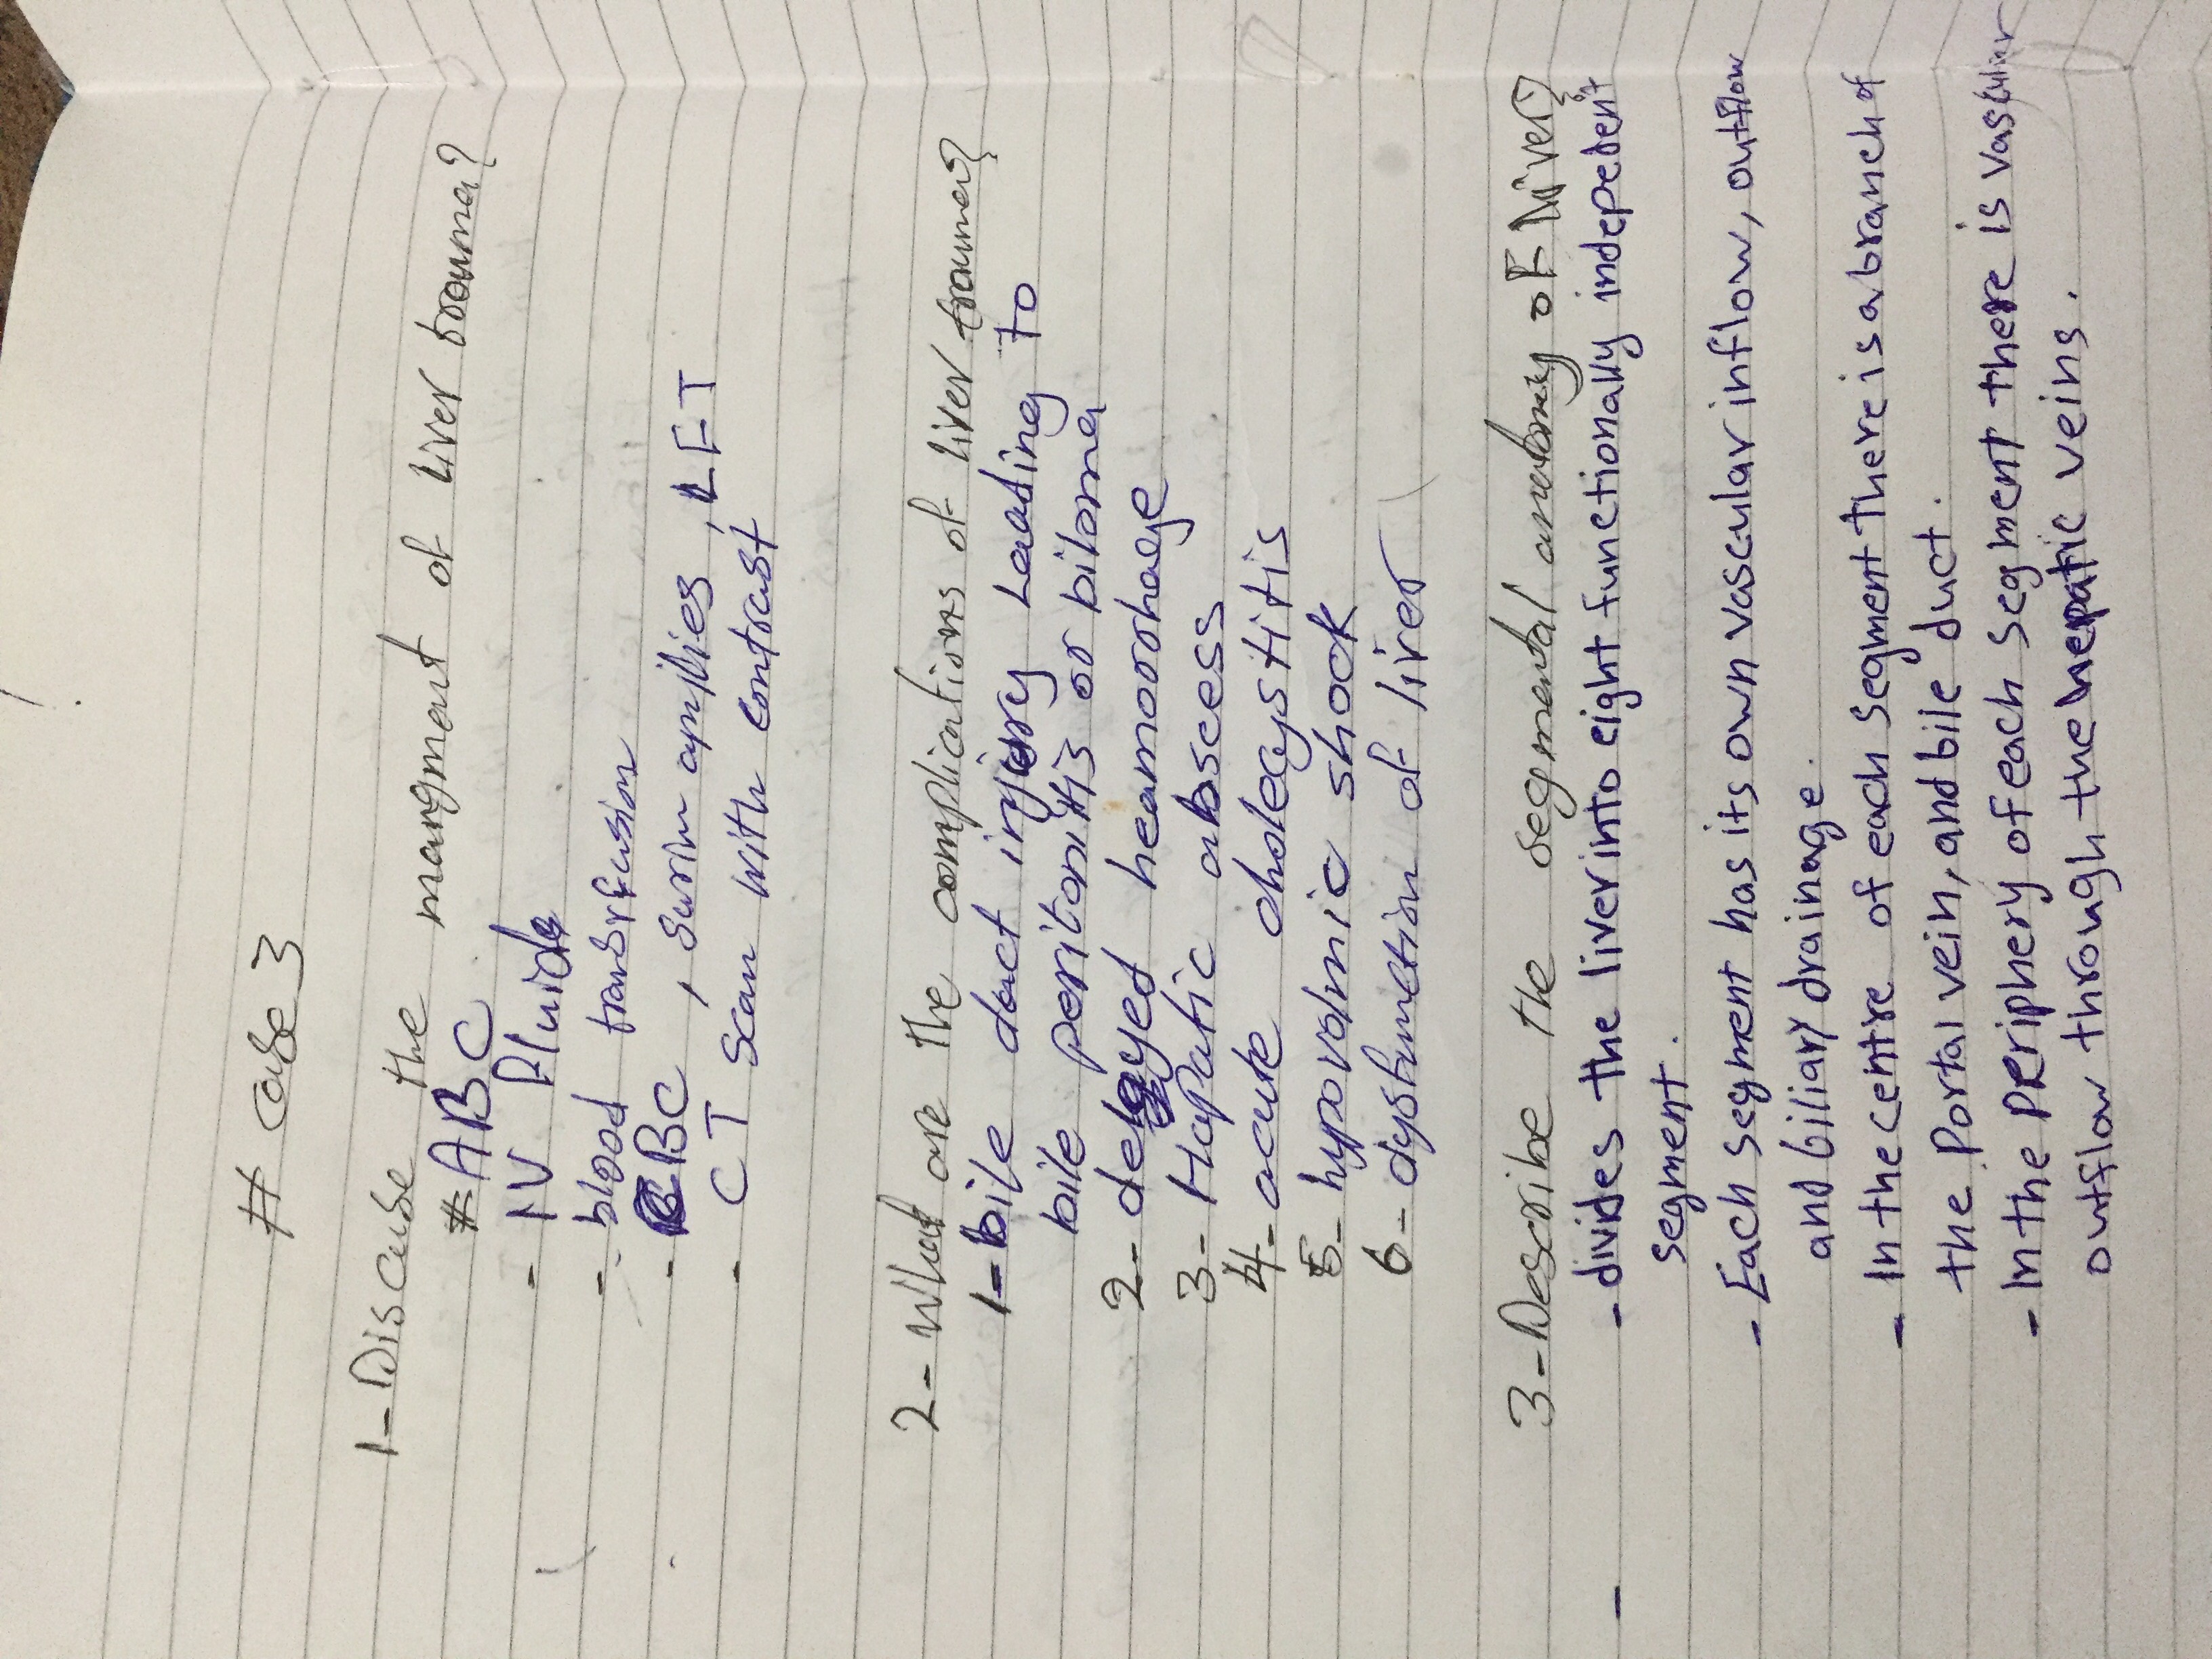 # case 3
1-Discuse the mangment of Liver trouma?
# ABC
- IV Fluide
- blood transfusion
- CBC, surim amylies, LFT
- CT scan with contrast
2- What are the complications of liver trouma?
1- bile duct injury Leading to
bile peritonitis or biloma
2- delayed heamorrhage
3- Hapatic abscess
4- acute cholecystitis
5- hypovolmic shock
6- dysfunction of liver
3-Describe the segmental anatomy of liver?
- divides the liver into eight functionally indepedent
segment.
- Each segment has its own vascular inflow, outflow
and biliary drainage.
- In the centre of each segment there is a branch of
the Portal vein, and bile duct.
- In the periphery of each segment there is vascular
outflow through the hepatic veins.